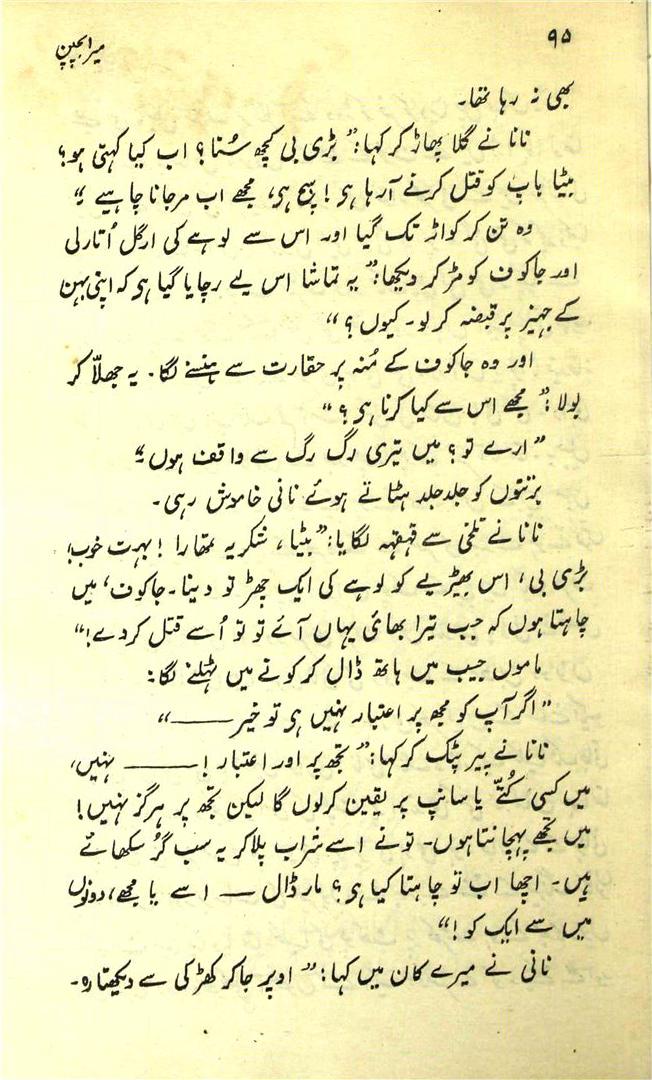 ۹۵
میرا بچپن
بھی نہ رہا تھا۔
نانا نے گلا پھاڑ کر کہا: ”بڑی بی کچھ سُنا؟ اب کیا کہتی ہو؟
بیٹا باپ کو قتل کرنے آ رہا ہی! سچ ہی، مجھے اب مر جانا چاہیے“
وہ تن کر کواڑ تک گیا اور اس سے لوہے کی ارگل اُتار لی
اور جاکوف کو مڑ کر دیکھا: ”یہ تماشا اس لیے رچایا گیا ہی کہ اپنی بہن
کے جہیز پر قبضہ کر لو۔ کیوں؟“
اور وہ جاکوف کے مُنہ پر حقارت سے ہنسنے لگا۔ یہ جھلّا کر
بولا: ”مجھے اس سے کیا کرنا ہی؟“
”ارے تو؟ میں تیری رگ رگ سے واقف ہوں“
برتنوں کو جلد جلد ہٹاتے ہوئے نانی خاموش رہی۔
نانا نے تلخی سے قہقہہ لگایا: ”بیٹا، شکریہ تمھارا! بہت خوب!
بڑی بی، اس بھیڑیے کو لوہے کی ایک چھڑ تو دینا۔ جاکوف، میں
چاہتا ہوں کہ جب تیرا بھائی یہاں آئے تو تو اُسے قتل کر دے!“
ماموں جیب میں ہاتھ ڈال کر کونے میں ٹہلنے لگا:
”اگر آپ کو مجھ پر اعتبار نہیں ہی تو خیر ——“
نانا نے پیر پٹک کر کہا: ”تجھ پر اور اعتبار! —— نہیں،
میں کسی کُتّے یا سانپ پر یقین کر لوں گا لیکن تجھ پر ہرگز نہیں!
میں تجھے پہچانتا ہوں۔ تو نے اسے شراب پلا کر یہ سب گُر سکھائے
ہیں۔ اچھا اب تو چاہتا کیا ہی؟ مار ڈال — اسے یا مجھے، دونوں
میں سے ایک کو!“
نانی نے میرے کان میں کہا: ”اوپر جا کر کھڑکی سے دیکھتا رہ۔